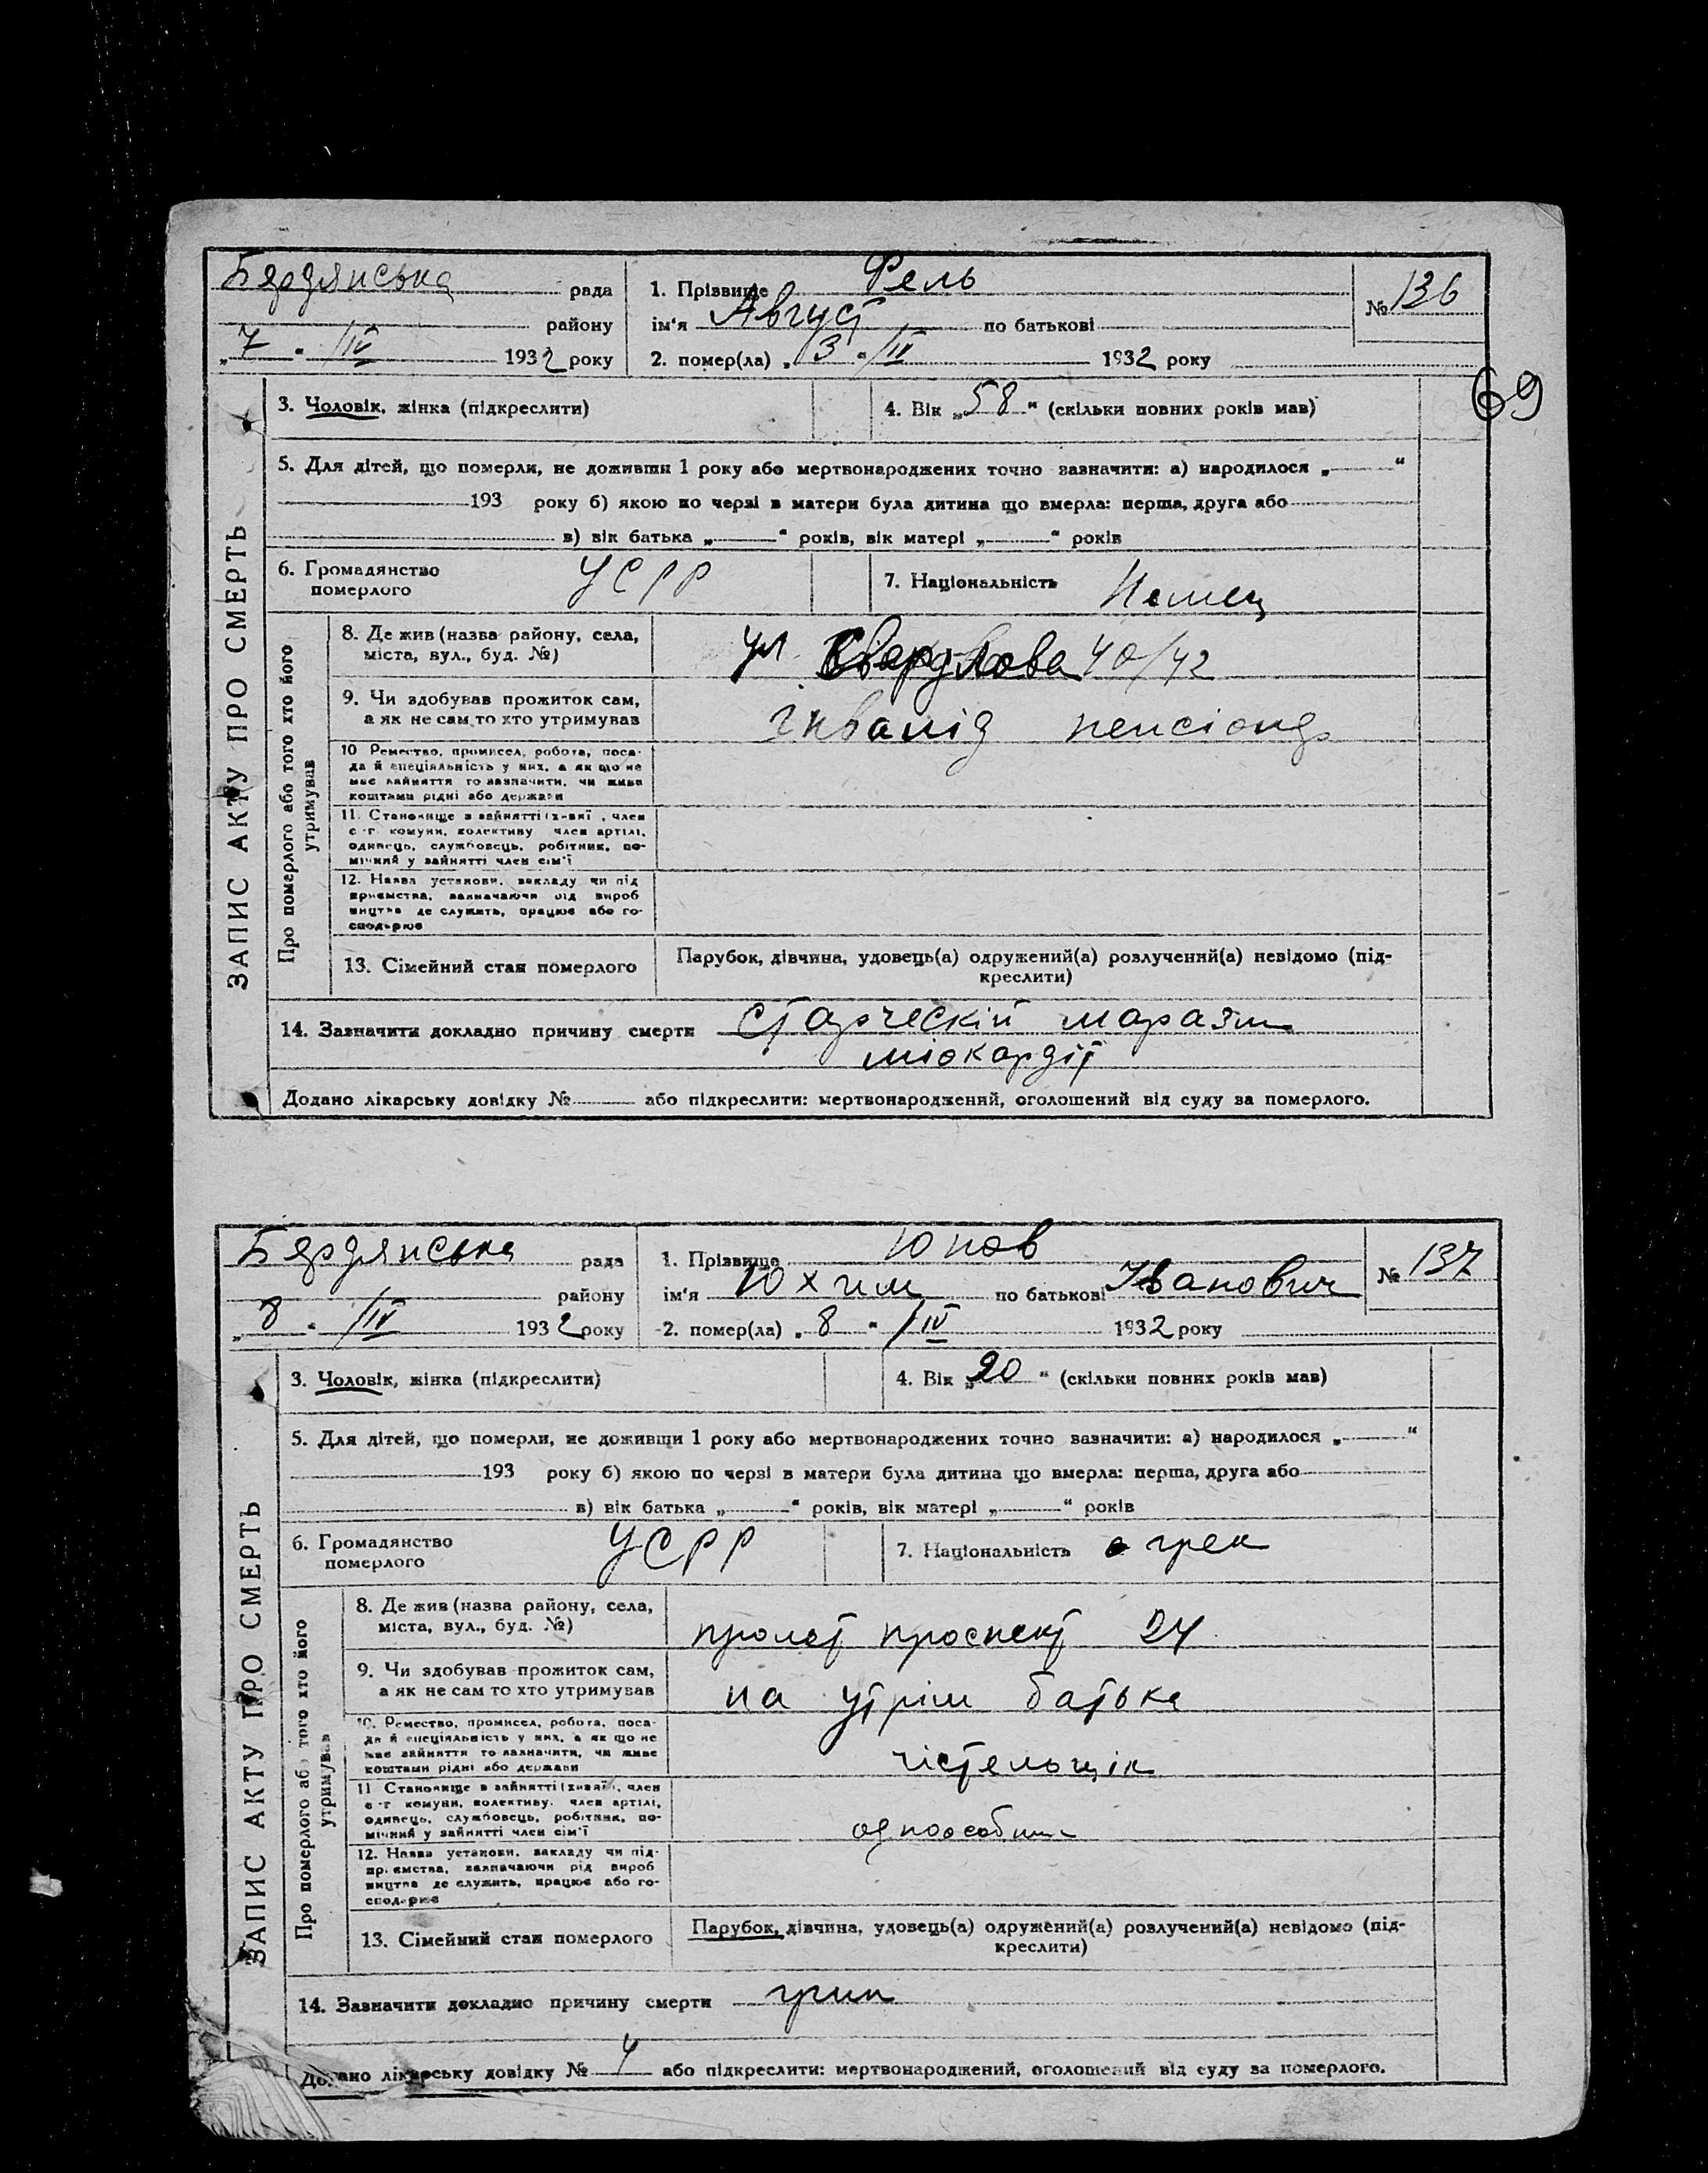 Бердянська рада
району
„7“ /IV 1932 року
1. Прізвище Фель
ім'я Август по батькові
2. помер(ла) „3“ /IV 1932 року
№ 136
69
ЗАПИС АКТУ ПРО СМЕРТЬ
3. Чоловік, жінка (підкреслити)
4. Вік „58“ (скільки повних років мав)
5. Для дітей, що померли, не доживши 1 року або мертвонароджених точно зазначити: а) народилося „ “
193 року б) якою по черзі в матери була дитина що вмерла: перша, друга або
в) вік батька „ “ років, вік матері „ “ років
6. Громадянство
померлого
УСРР
7. Національність Немец
Про померлого або того хто його
утримував
8. Де жив (назва району, села,
міста, вул., буд. №)
ул. Свердлова 40/42
9. Чи здобував прожиток сам,
а як не сам то хто утримував
інвалід пенсіонд
10 Ремество, промисел, робота, поса-
да й спеціяльність у них, а як що не
має зайняття то зазначити, чи живе
коштами рідні або держави
11. Становище в зайнятті (хазяї, член
с.-г. комуни, колективу член артілі,
одинець, службовець, робітник, по-
мічний у зайнятті член сім'ї
12. Назва установи, закладу чи під
приємства, зазначаючи рід вироб
ництва де служить, працює або го-
сподарює
13. Сімейний стан померлого
Парубок, дівчина, удовець(а) одружений(а) розлучений(а) невідомо (під-
креслити)
14. Зазначити докладно причину смерти старческій маразм
міокардіт
Додано лікарську довідку № або підкреслити: мертвонароджений, оголошений від суду за померлого.
Бердянська рада
району
„8“ /IV 1932 року
1. Прізвище Юпов
ім'я Юхим по батькові Іванович
2. помер(ла) „8“ /IV 1932 року
№ 137
ЗАПИС АКТУ ПРО СМЕРТЬ
3. Чоловік, жінка (підкреслити)
4. Вік „20“ (скільки повних років мав)
5. Для дітей, що померли, не доживши 1 року або мертвонароджених точно зазначити: а) народилося „ “
193 року б) якою по черзі в матери була дитина що вмерла: перша, друга або
в) вік батька „ “ років, вік матері „ “ років
6. Громадянство
померлого
УСРР
7. Національність грек
Про померлого або того хто його
утримував
8. Де жив (назва району, села,
міста, вул., буд. №)
пролет проспект 24
9. Чи здобував прожиток сам,
а як не сам то хто утримував
на утрім батька
10. Ремество, промисел, робота, поса-
да й спеціяльність у них, а як що не
має зайняття то зазначити, чи живе
коштами рідні або держави
чістельщік
11 Становище в зайнятті (хазяї, член
с.-г. комуни, колективу, член артілі,
одинець, службовець, робітник, по-
мічний у зайнятті член сім'ї
одноособник
12. Назва установи, закладу чи під-
приємства, зазначаючи рід вироб
ництва де служить, працює або го-
сподарює
13. Сімейний стан померлого
Парубок, дівчина, удовець(а) одружений(а) розлучений(а) невідомо (під-
креслити)
14. Зазначити докладно причину смерти грип
Додано лікарську довідку № 4 або підкреслити: мертвонароджений, оголошений від суду за померлого.